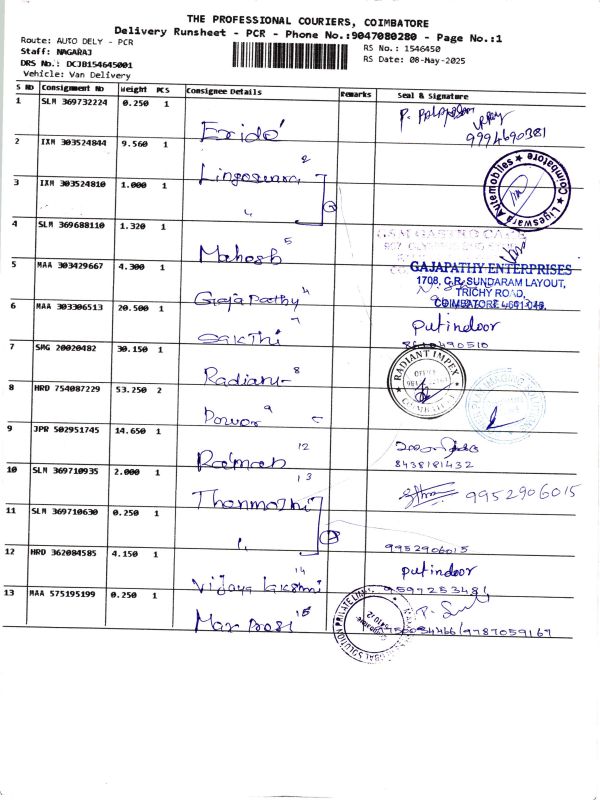 THE PROFESSIONAL COURIERS, COIMBATORE
Delivery Runsheet - PCR - Phone No.:9047080280 - Page No.:1
Route: AUTO DELY - PCR
RS No.: 1546450
Staff: NAGARAJ
RS Date: 08-May-2025
DRS No.: DCJB154645001
Vehicle: Van Delivery
S No Consignment No Weight PCS Consignee Details Remarks Seal & Signature
1 SLM 369732224 0.250 1 Exide
9994690381
2 IXM 303524844 9.560 1 Lingeswara 2
Coimbatore Ligeswara Automobiles
3 IXM 303524810 1.000 1 "
4 SLM 369688110 1.320 1 Mahesh 5
5 MAA 303429667 4.300 1 Gajapathy
GAJAPATHY ENTERPRISES
1708, C.R. SUNDARAM LAYOUT,
TRICHY ROAD,
COIMBATORE
6 MAA 303306513 20.500 1 Sakthi 7 putindoor
8610490510
7 SMG 20020482 30.150 1 Radiant 8
RADIANT IMPEX
COIMBATORE
8 HRD 754087229 53.250 2 Power 9
9 JPR 502951745 14.650 1 12
8438181432
10 SLM 369710935 2.000 1 Thenmozhi 13 9952906015
11 SLM 369710630 0.250 1 9952906015
12 HRD 362084585 4.150 1 Vijaya Lakshmi 14 putindoor
9597253481
13 MAA 575195199 0.250 1 15
SOLUTION PRIVATE LIMITED
9787059167